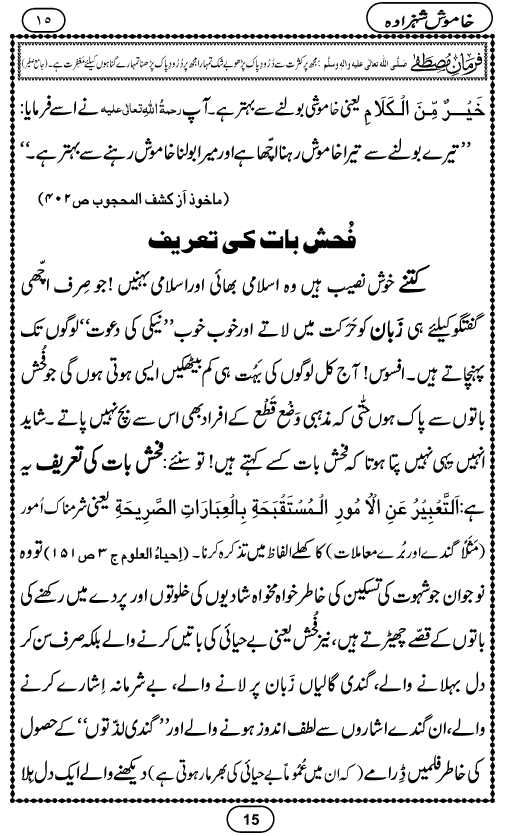 خاموش شہزادہ
۱۵
فرمانِ مصطفٰے صلَّی اللہ تعالٰی علیہ واٰلہٖ وسلَّم : مجھ پر کثرت سے دُرُودِ پاک پڑھو بے شک تمہارا مجھ پر دُرُودِ پاک پڑھنا تمہارے گناہوں کیلئے مغفرت ہے۔ (جامع صغیر)
خَیْرٌ مِّنَ الْکَلَامِ یعنی خاموشی بولنے سے بہتر ہے۔ آپ رحمۃُ اللہِ تعالٰی علیہ نے اسے فرمایا:
’’تیرے بولنے سے تیرا خاموش رہنا اچھا ہے اور میرا بولنا خاموش رہنے سے بہتر ہے۔‘‘
(ماخوذ اَز کشف المحجوب ص۴۰۲)
فُحش بات کی تعریف
کتنے خوش نصیب ہیں وہ اسلامی بھائی اور اسلامی بہنیں! جو صِرف اچّھی
گفتگو کیلئے ہی زَبان کو حَرَکت میں لاتے اور خوب خوب ’’نیکی کی دعوت‘‘ لوگوں تک
پہنچاتے ہیں۔ افسوس! آج کل لوگوں کی بَہُت ہی کم بیٹھکیں ایسی ہوتی ہوں گی جو فُحش
باتوں سے پاک ہوں حتّٰی کہ مذہبی وَضْع قَطْع کے افراد بھی اس سے بچ نہیں پاتے۔ شاید
انہیں یہی نہیں پتا ہوتا کہ فحش بات کسے کہتے ہیں! تو سنئے: فحش بات کی تعریف یہ
ہے: اَلتَّعْبِیْرُ عَنِ الْاُمُورِ الْمُسْتَقْبَحَةِ بِالْعِبَارَاتِ الصَّرِیْحَةِ یعنی شرمناک اُمور
(مَثَلاً گندے اور بُرے معاملات) کا کھلے الفاظ میں تذکرہ کرنا۔ (اِحیاءُ العلوم ج ۳ ص ۱۵۱) تو وہ
نوجوان جو شہوت کی تسکین کی خاطر خواہ مخواہ شادیوں کی خلوتوں اور پردے میں رکھنے کی
باتوں کے قصّے چھیڑتے ہیں، نیز فُحش یعنی بے حیائی کی باتیں کرنے والے بلکہ صرف سن کر
دل بہلانے والے، گندی گالیاں زَبان پر لانے والے، بے شرمانہ اِشارے کرنے
والے، ان گندے اشاروں سے لطف اندوز ہونے والے اور ’’گندی لذّتوں‘‘ کے حصول
کی خاطر فلمیں ڈرامے (کہ ان میں عُمُوماً بے حیائی کی بھرمار ہوتی ہے) دیکھنے والے ایک دل ہِلا
15